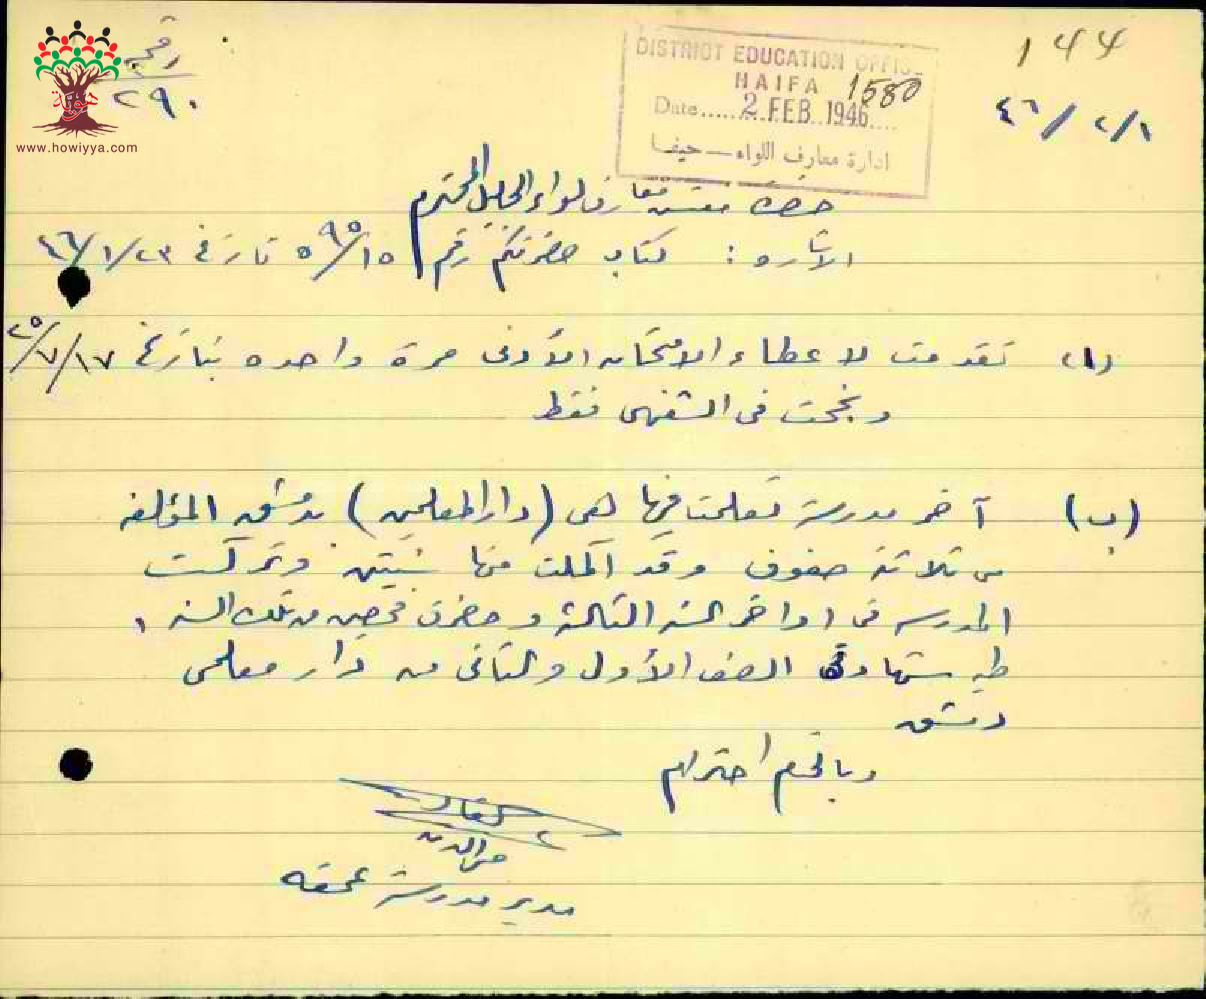 رقم
٢٩٠
هوية
www.howiyya.com
DISTRICT EDUCATION OFFICE
HAIFA 1580
Date........2 FEB 1946....
ادارة معارف اللواء — حيفا
144
٤٦/٢/١
حضرة مفتش معارف لواء الجليل المحترم
الاشاره : كتاب حضرتكم رقم تاريخ ٤٦/١/٢٣
(١) تقدمت لاعطاء الامتحان الأدنى مرة واحده بتاريخ ٤٥/٧/١٧
ونجحت في الشفهي فقط
(ب) آخر مدرسة تعلمت فيها هي (دار المعلمين) بدمشق المؤلفه
من ثلاثة صفوف وقد اكملت منها سنتين وتركت
المدرسه في اواخر السنه الثالثة و من تلك السنه ،
طيه شهادة الصف الأول والثاني من دار معلمي
دمشق
وبالختام احترام
مدير مدرسة عمقه